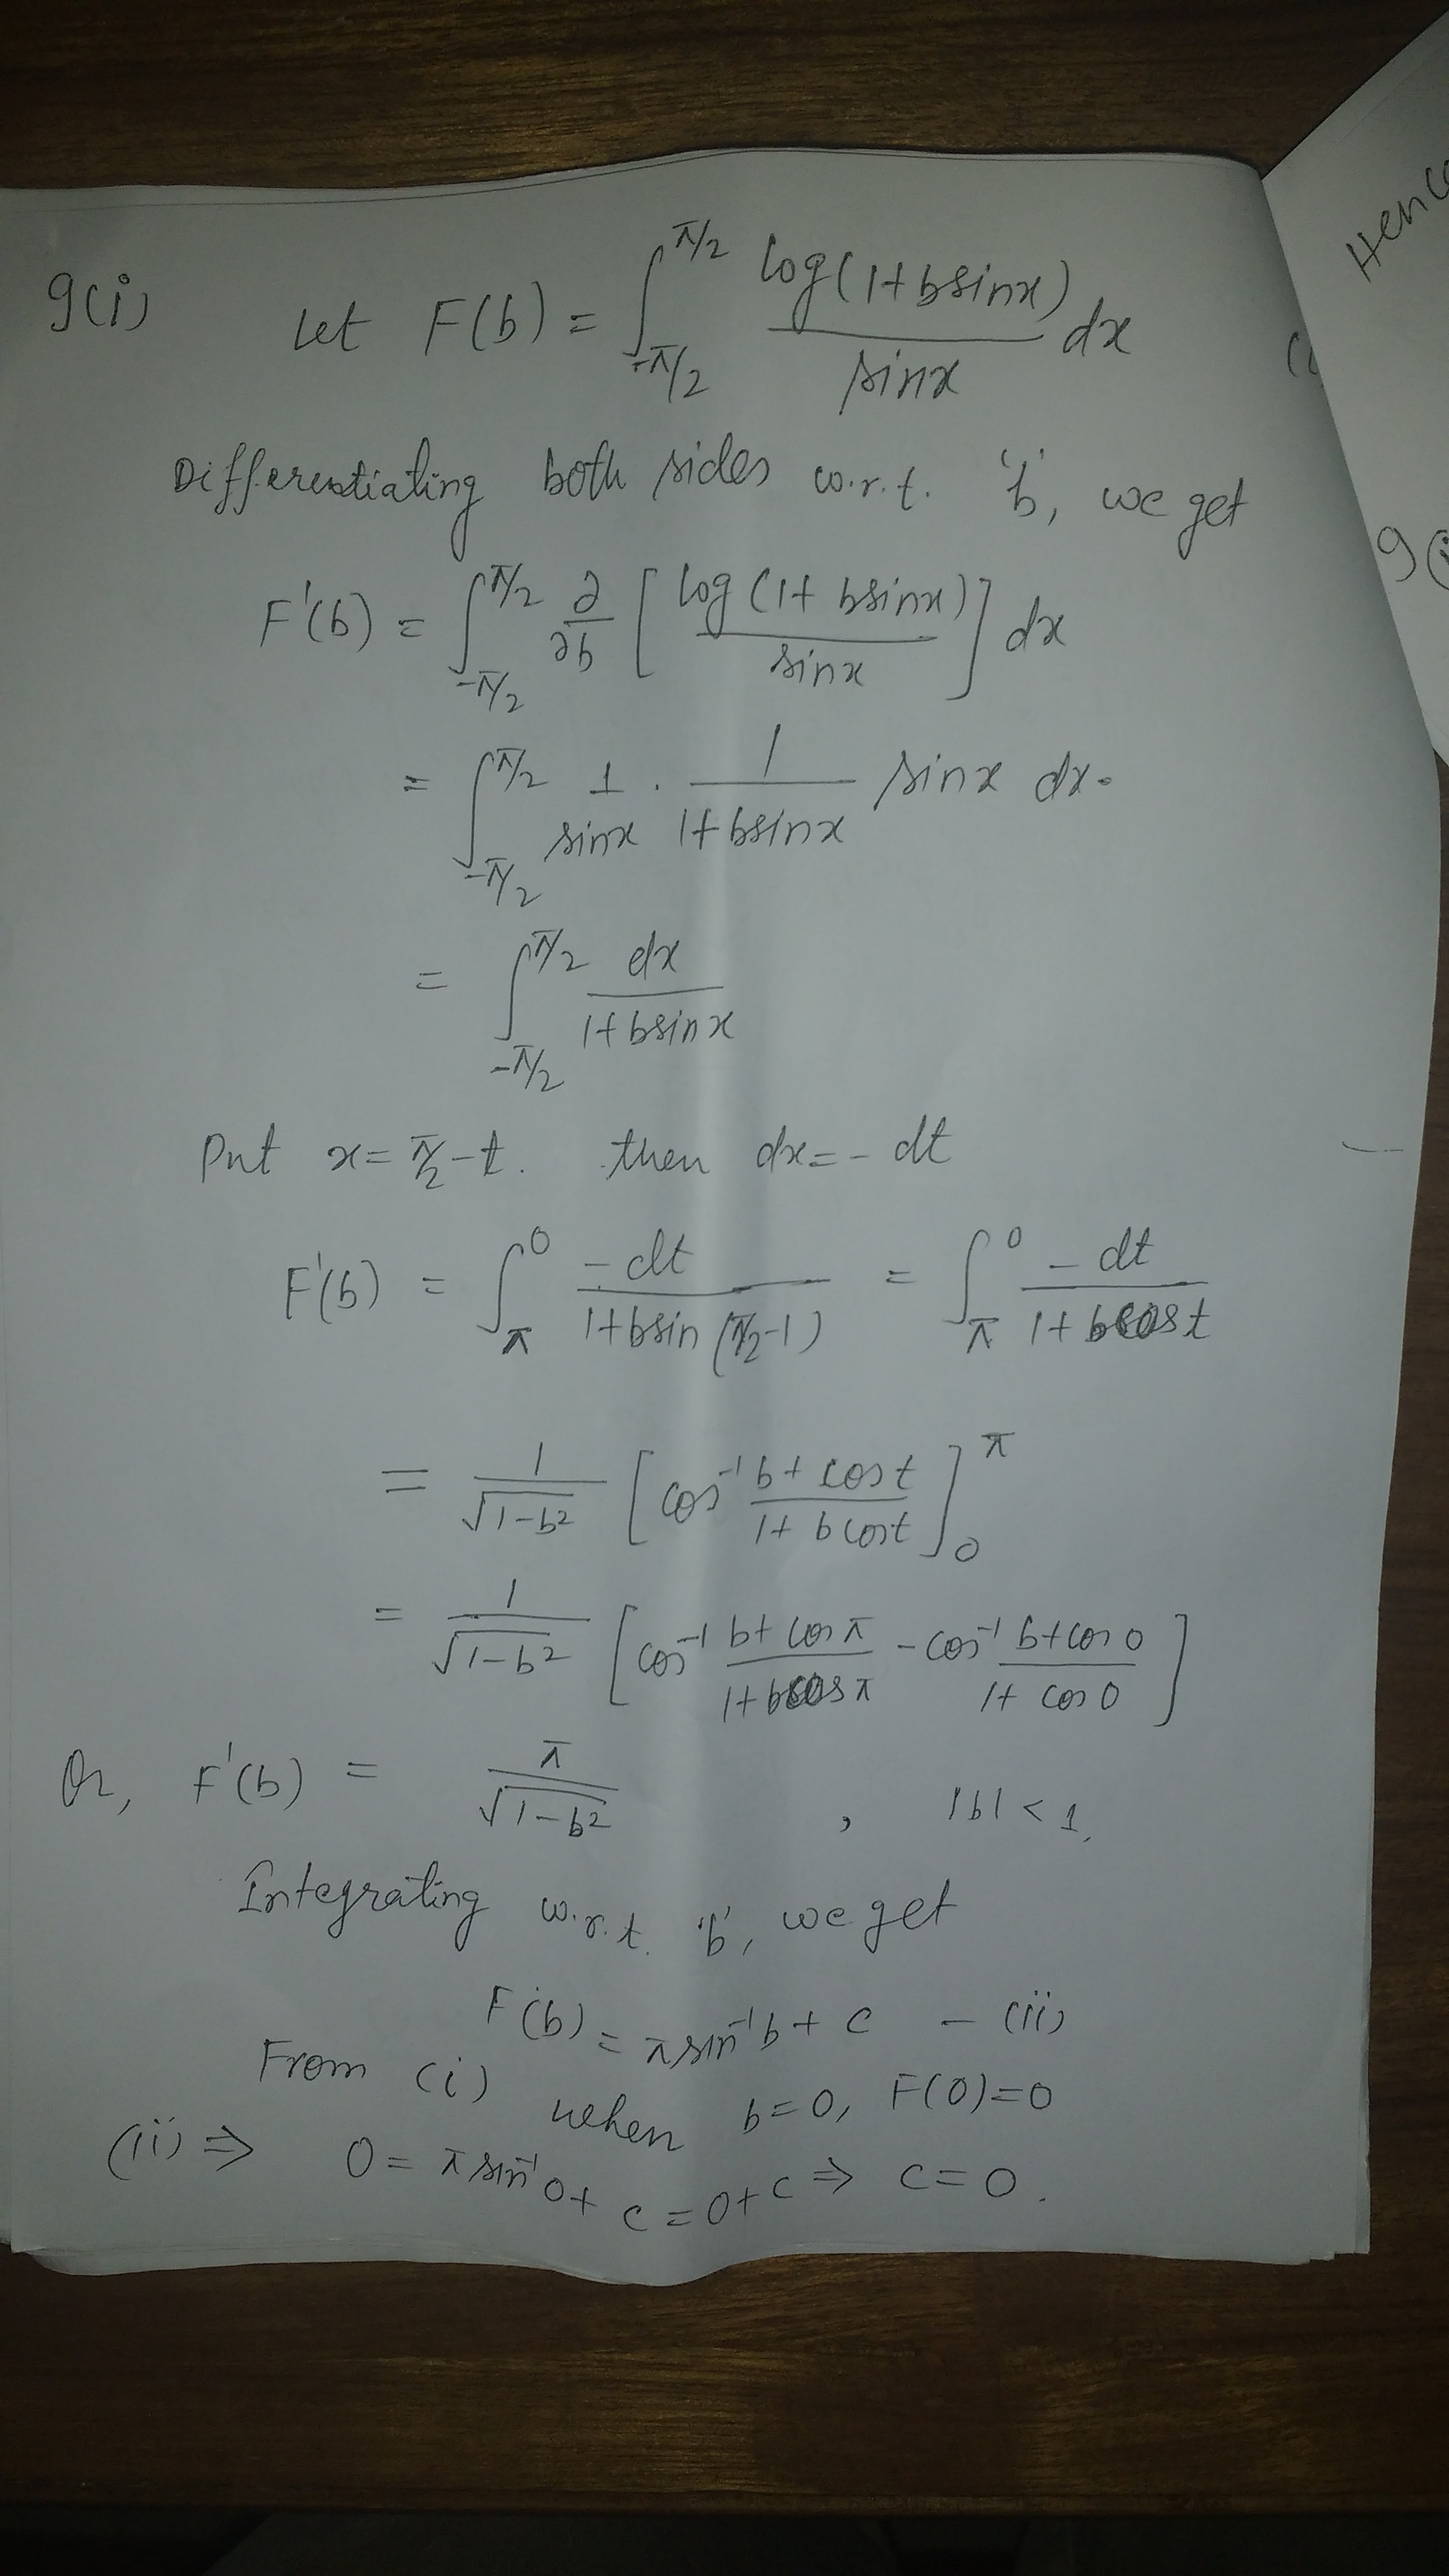 9(i) Let F(b) = ∫_{-π/2}^{π/2} log(1+bsinx)/sinx dx
Differentiating both sides w.r.t. 'b', we get
F'(b) = ∫_{-π/2}^{π/2} ∂/∂b [log(1+bsinx)/sinx] dx
= ∫_{-π/2}^{π/2} 1/sinx . 1/(1+bsinx) sinx dx.
= ∫_{-π/2}^{π/2} dx/(1+bsinx)
Put x = π/2 - t. then dx = - dt
F'(b) = ∫_{π}^{0} -dt/(1+bsin(π/2-1)) = ∫_{π}^{0} -dt/(1+bcost)
= 1/√(1-b²) [cos⁻¹ (b+cost)/(1+bcost)]_{0}^{π}
= 1/√(1-b²) [cos⁻¹ (b+cosπ)/(1+bcosπ) - cos⁻¹ (b+cos0)/(1+cos0)]
Or, F'(b) = π/√(1-b²) , |b| < 1.
Integrating w.r.t. 'b', we get
F(b) = π sin⁻¹b + c - (ii)
From (i) when b=0, F(0)=0
(ii) ⇒ 0 = π sin⁻¹0 + c = 0+c ⇒ c = 0.
Hence
9(i